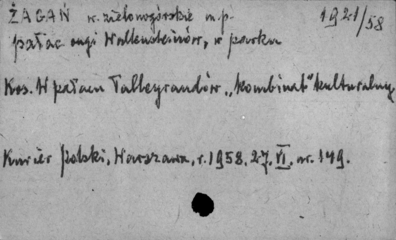 ŻAGAŃ w. zielonogórskie m.p. 1921/58
pałac ongi Wallensteinów, w parku
Kos. W pałacu Talleyrandów „kombinat" kulturalny
Kurier Polski, Warszawa, r. 1958. 27. VI. nr. 149.